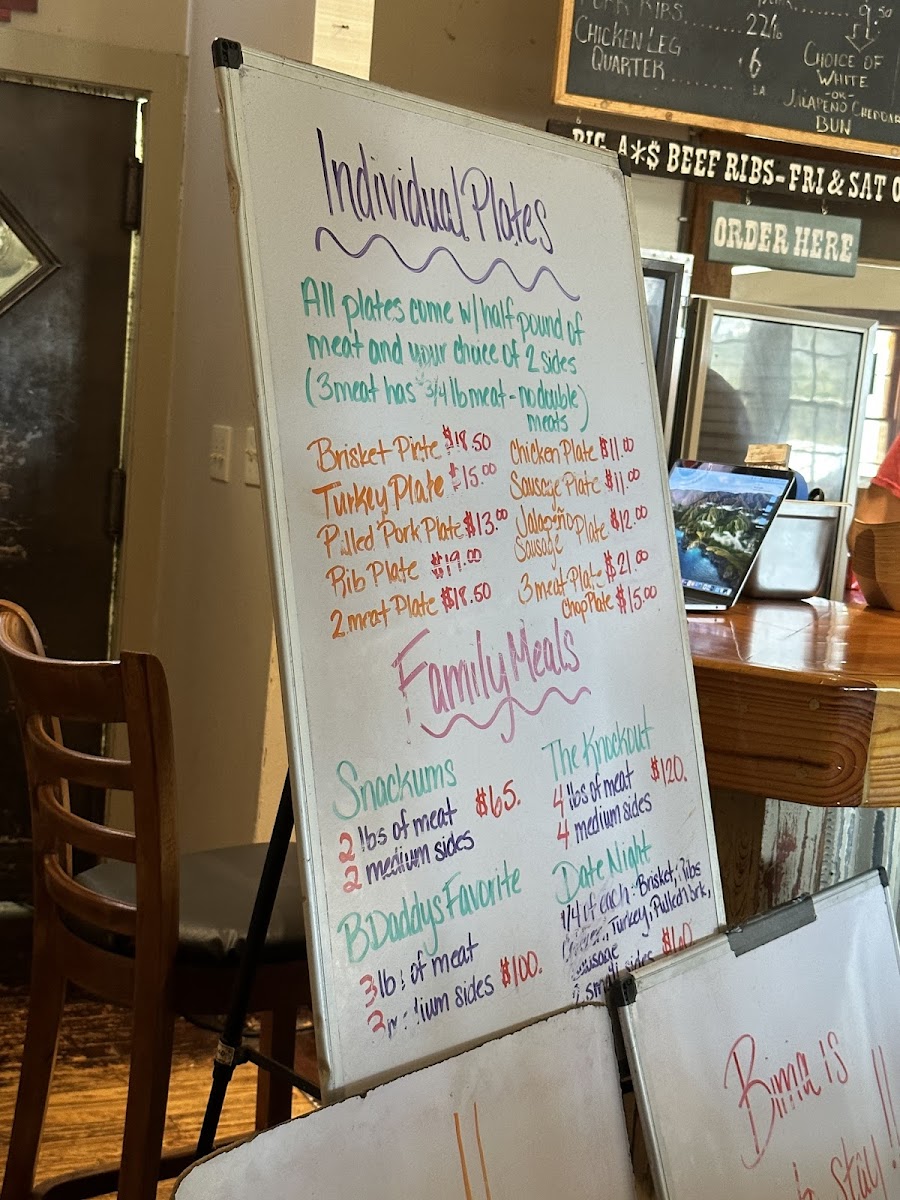 Individual Plates
All plates come w/ half pound of
meat and your choice of 2 sides
(3 meat has 3/4 lb meat - no double
meats)
Brisket Plate $18.50
Turkey Plate $15.00
Pulled Pork Plate $13.00
Rib Plate $19.00
2 meat Plate $18.50
Chicken Plate $11.00
Sausage Plate $11.00
Jalapeño
Sausage Plate $12.00
3 meat Plate $21.00
Chop Plate $15.00
Family Meals
Snackums
2 lbs of meat $65.
2 medium sides
BDaddys Favorite
3 lbs of meat
3 medium sides $100.
The Knockout
4 lbs of meat $120.
4 medium sides
Date Night
1/4 of each: Brisket, Ribs
Turkey, Pulled Pork,
Sausage
small sides $60
PORK RIBS
22
CHICKEN LEG
QUARTER 6
EA
9.50
CHOICE OF
WHITE
-OR-
JALAPEÑO CHEDDAR
BUN
BIG A*$ BEEF RIBS-FRI & SAT
ORDER HERE
is
stay!